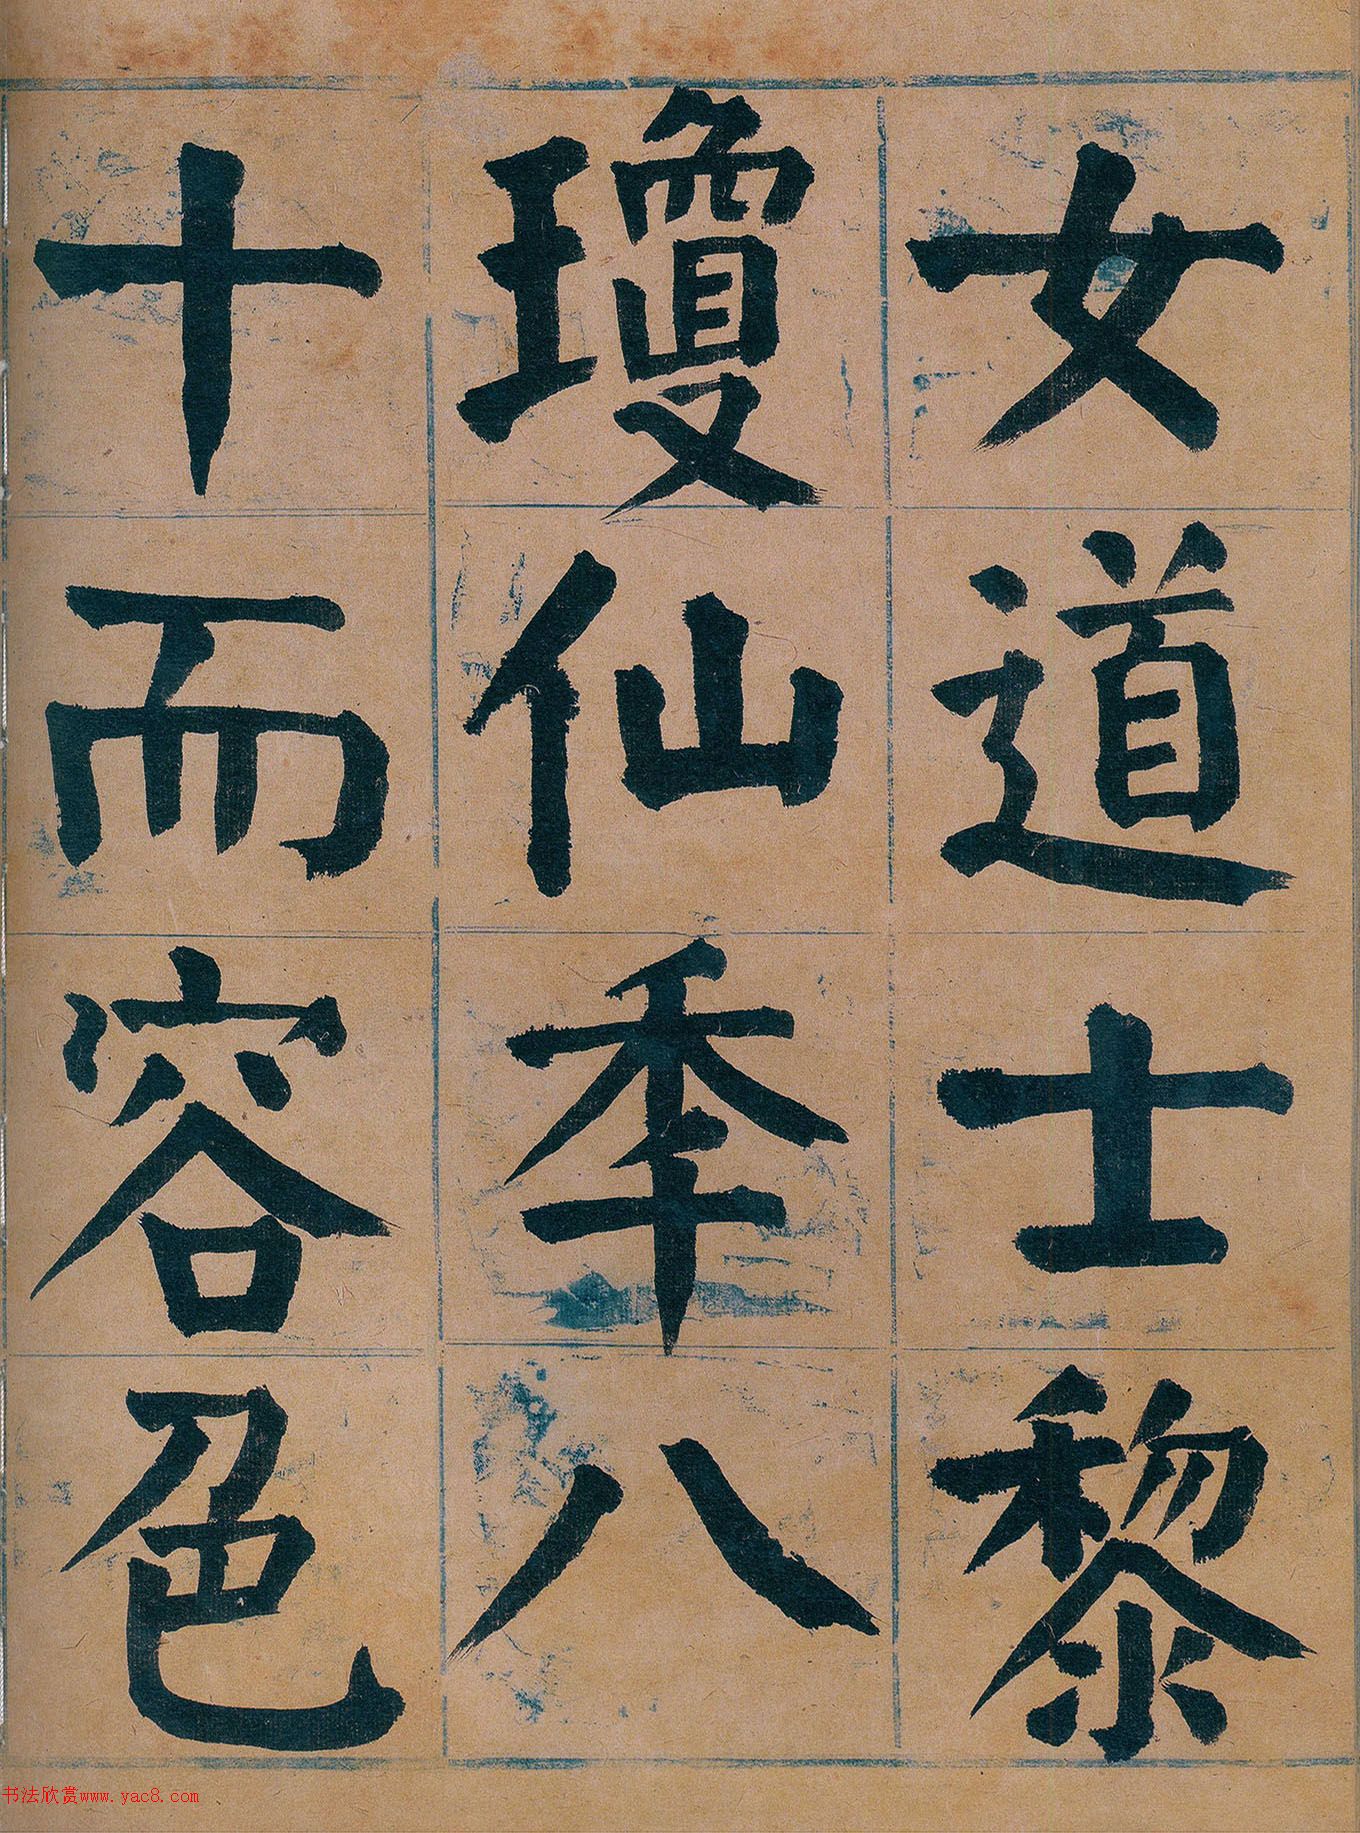 女道士黎
瓊仙秊八
十而容色
书法欣赏www.yac8.com